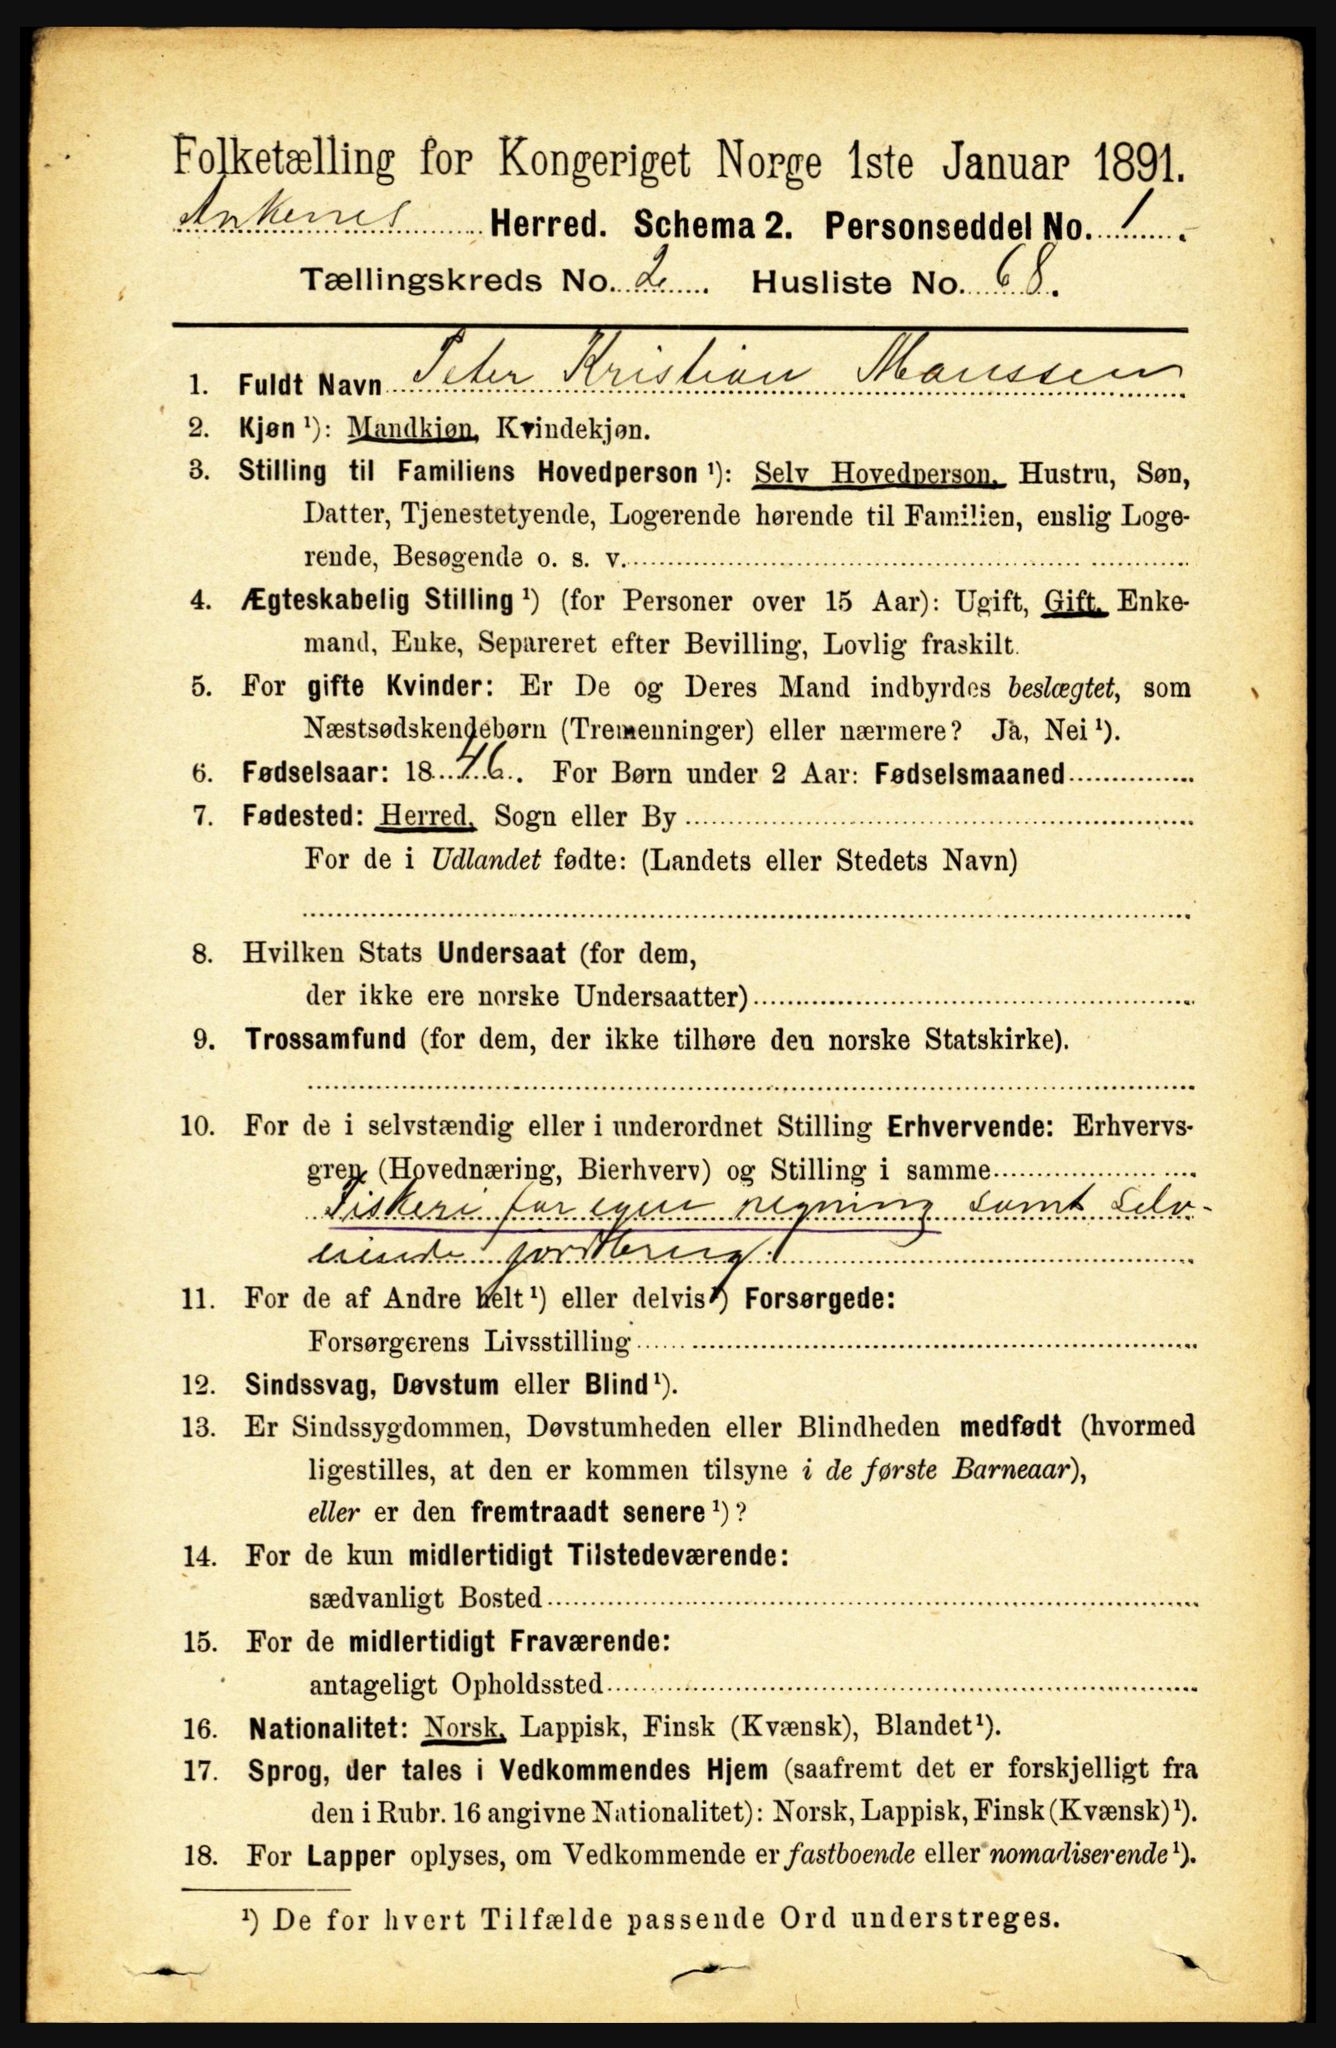 Folketælling for Kongeriget Norge 1ste Januar 1891.
Ankenes Herred. Schema 2. Personseddel No. 1.
Tællingskreds No. 2. Husliste No. 68.
1. Fuldt Navn Peter Kristian Monssen
2. Kjøn ¹): Mandkjøn, Kvindekjøn.
3. Stilling til Familiens Hovedperson ¹): Selv Hovedperson, Hustru, Søn,
Datter, Tjenestetyende, Logerende hørende til Familien, enslig Loge-
rende, Besøgende o. s. v.
4. Ægteskabelig Stilling ¹) (for Personer over 15 Aar): Ugift, Gift, Enke-
mand, Enke, Separeret efter Bevilling, Lovlig fraskilt.
5. For gifte Kvinder: Er De og Deres Mand indbyrdes beslægtet, som
Næstsødskendebørn (Tremenninger) eller nærmere? Ja, Nei ¹).
6. Fødselsaar: 1846. For Børn under 2 Aar: Fødselsmaaned
7. Fødested: Herred, Sogn eller By
For de i Udlandet fødte: (Landets eller Stedets Navn)
8. Hvilken Stats Undersaat (for dem,
der ikke ere norske Undersaatter)
9. Trossamfund (for dem, der ikke tilhøre den norske Statskirke).
10. For de i selvstændig eller i underordnet Stilling Erhvervende: Erhvervs-
gren (Hovednæring, Bierhverv) og Stilling i samme
Fiskeri for egen regning samt selv-
eiende jordbrug.
11. For de af Andre helt ¹) eller delvis ¹) Forsørgede:
Forsørgerens Livsstilling
12. Sindssvag, Døvstum eller Blind ¹).
13. Er Sindssygdommen, Døvstumheden eller Blindheden medfødt (hvormed
ligestilles, at den er kommen tilsyne i de første Barneaar),
eller er den fremtraadt senere ¹)?
14. For de kun midlertidigt Tilstedeværende:
sædvanligt Bosted
15. For de midlertidigt Fraværende:
antageligt Opholdssted
16. Nationalitet: Norsk, Lappisk, Finsk (Kvænsk), Blandet ¹).
17. Sprog, der tales i Vedkommendes Hjem (saafremt det er forskjelligt fra
den i Rubr. 16 angivne Nationalitet): Norsk, Lappisk, Finsk (Kvænsk) ¹).
18. For Lapper oplyses, om Vedkommende er fastboende eller nomadiserende ¹).
¹) De for hvert Tilfælde passende Ord understreges.